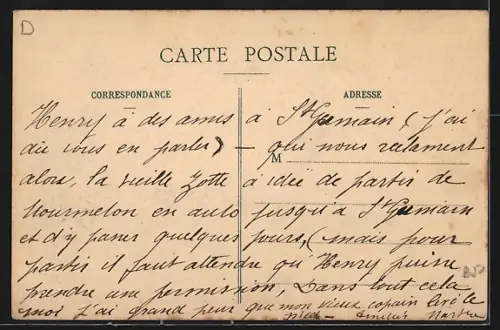 D
CARTE POSTALE
CORRESPONDANCE
ADRESSE
M
Henry à des amis à St Germain (j'ai
dû vous en parler) — qui nous réclament
alors, la vieille Zotte à idée de partir de
Mourmelon en auto jusqu'à St Germain
et d'y passer quelques jours, (mais pour
partir il faut attendre qu'Henry puisse
prendre une permission. Dans tout cela
moi j'ai grand peur que mon vieux copain lève le
pied —